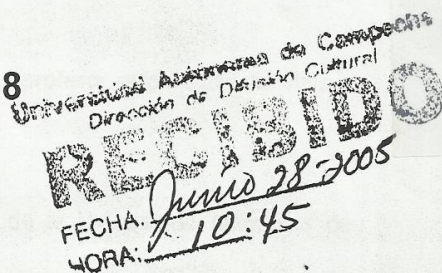 8
Universidad Autónoma de Campeche
Dirección de Difusión Cultural
RECIBIDO
FECHA: Junio 28-2005
HORA: 10:45